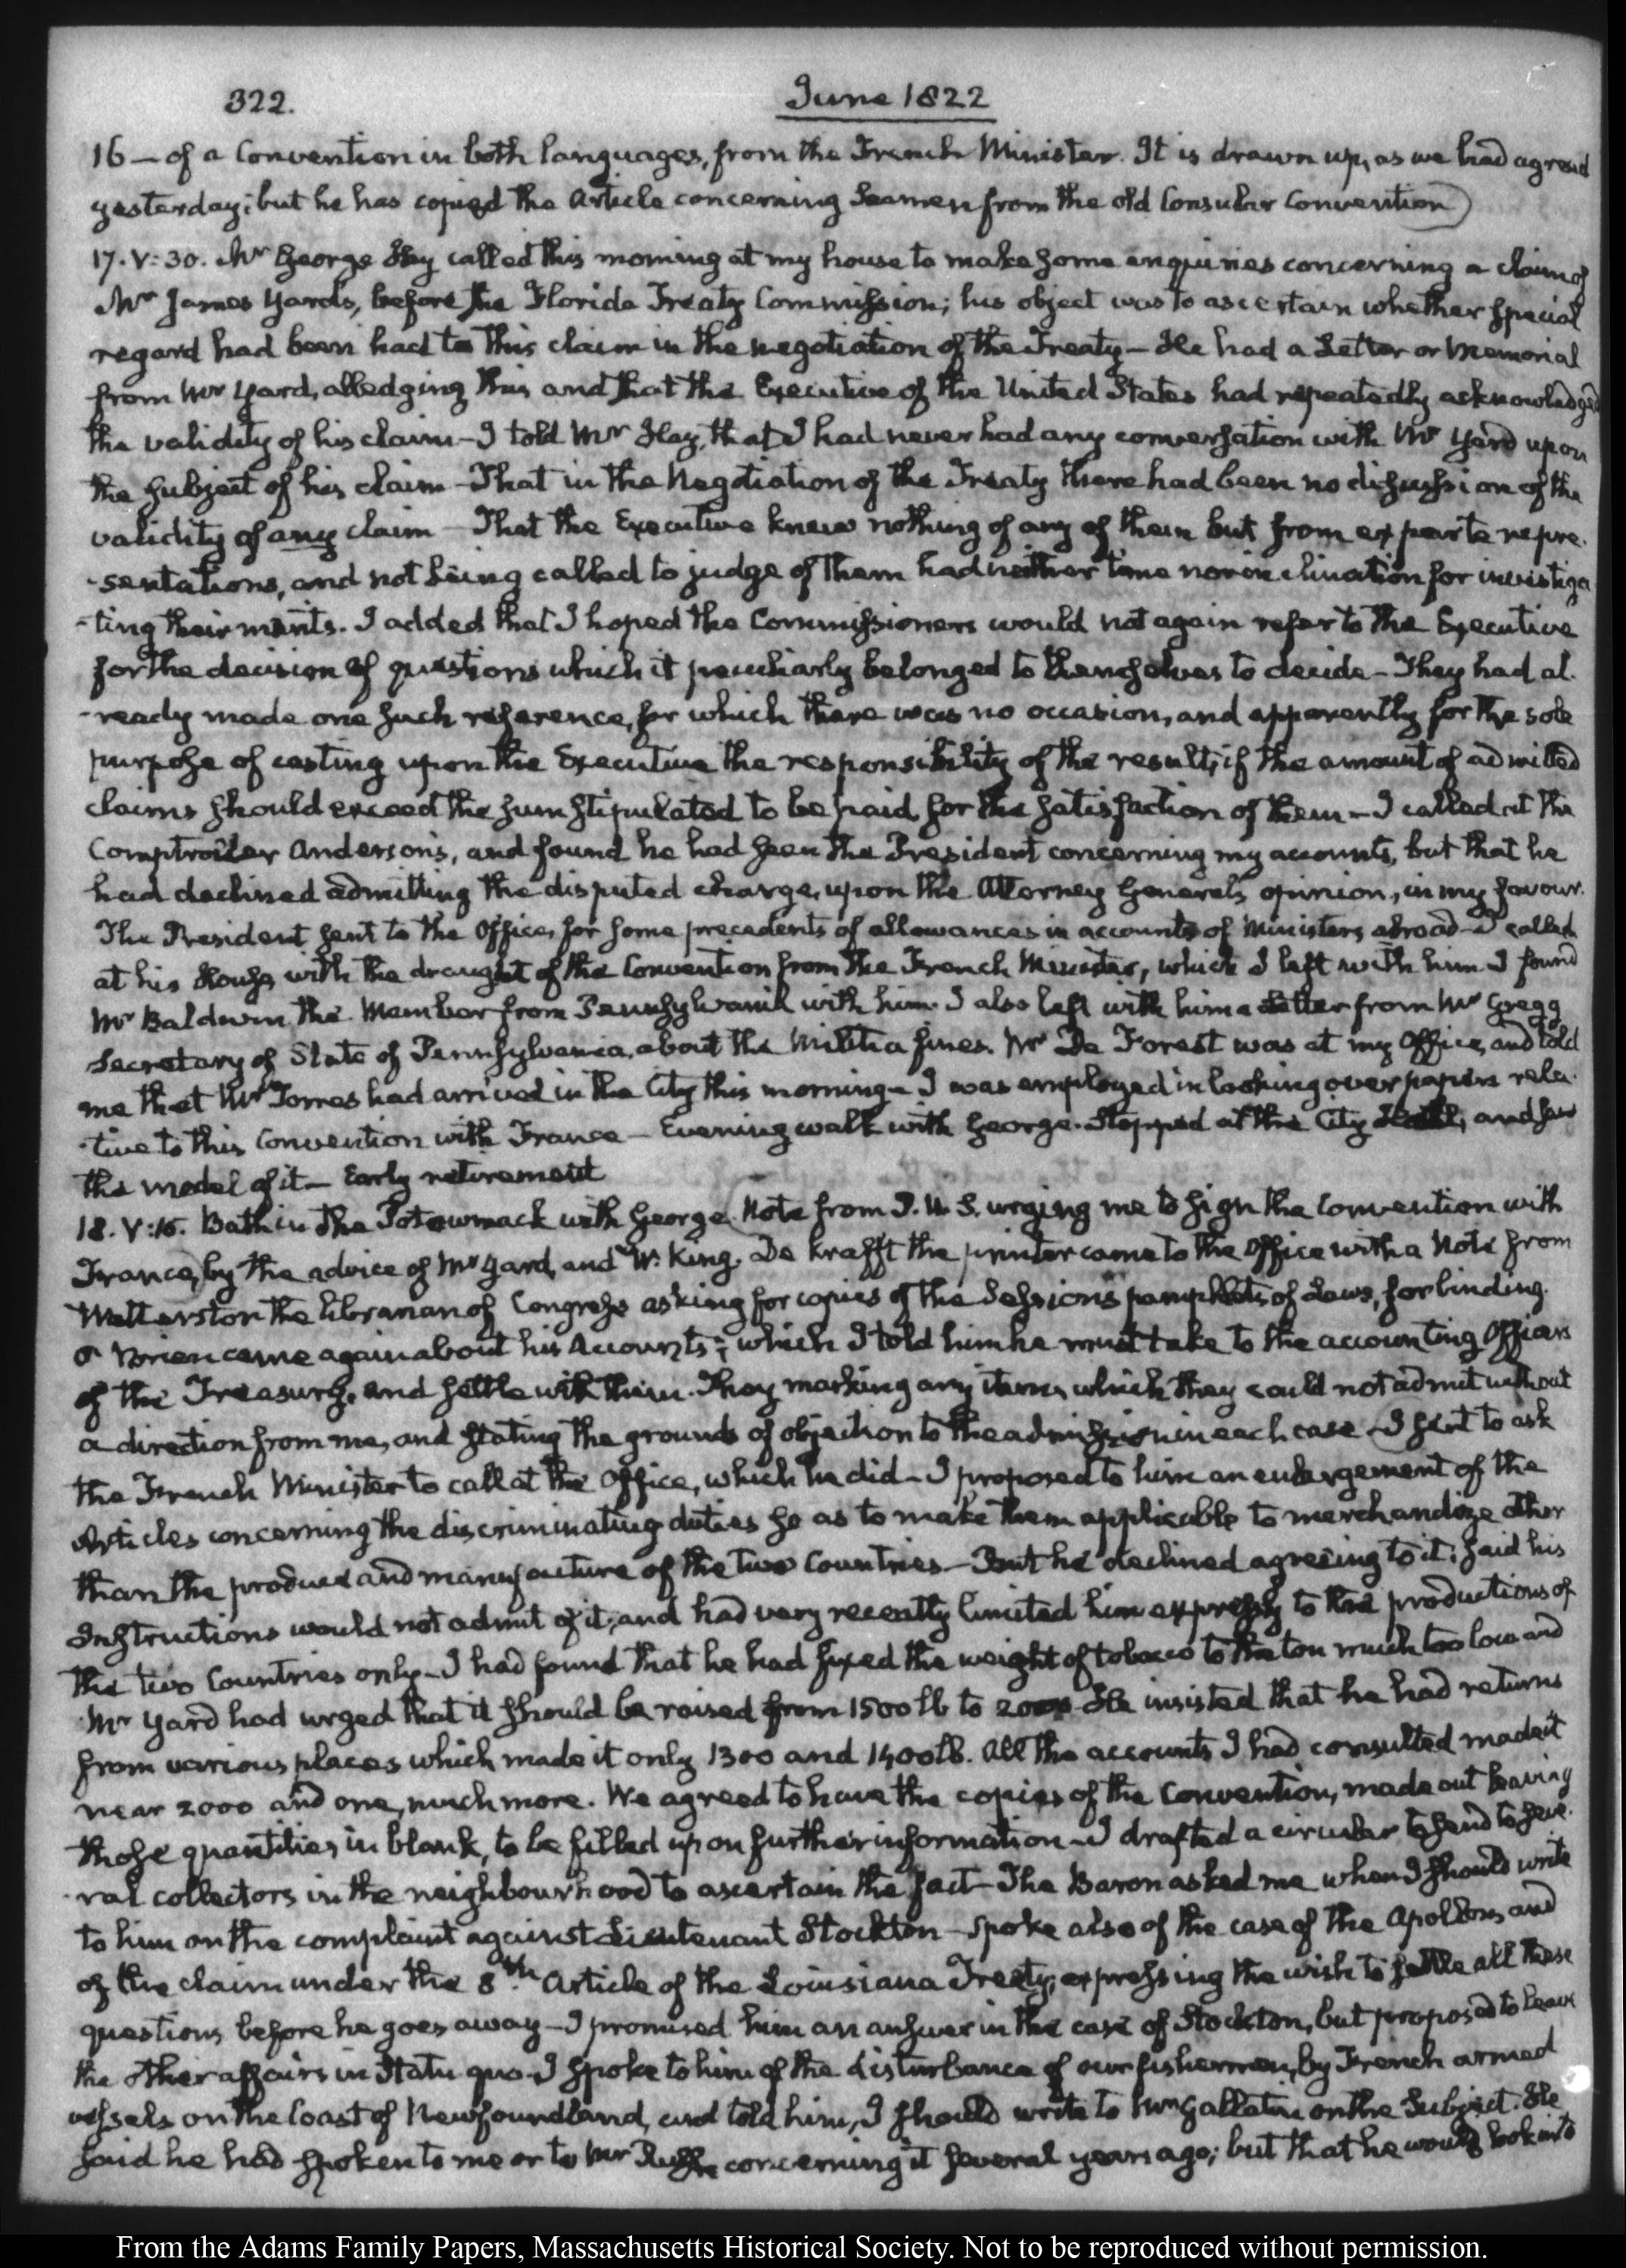 322.
June 1822
16 — of a Convention in both languages, from the French Minister. It is drawn up, as we had agreed
yesterday; but he has copied the Article concerning Seamen from the old Consular Convention)
17. V:30. Mr George Hay called this morning at my house to make some enquiries concerning a claim of
Mr James Yard's, before the Florida Treaty Commission; his object was to ascertain whether special
regard had been had to this claim in the negotiation of the Treaty — He had a Letter or Memorial
from Mr Yard, alledging this and that the Executive of the United States had repeatedly acknowledged
the validity of his claim — I told Mr Hay, that I had never had any conversation with Mr Yard upon
the subject of his claim — That in the Negotiation of the Treaty there had been no discussion of the
validity of any claim — That the Executive knew nothing of any of them but from ex parte repre-
-sentations, and not being called to judge of them had neither time nor inclination for investiga
-ting their merits. I added that I hoped the Commissioners would not again refer to the Executive
for the decision of questions which it peculiarly belonged to themselves to decide — They had al-
-ready made one such reference, for which there was no occasion, and apparently for the sole
purpose of casting upon the Executive the responsibility of the result, if the amount of admitted
claims should exceed the sum stipulated to be paid for the satisfaction of them — I called at the
Comptroller Anderson's, and found he had seen the President concerning my accounts, but that he
had declined admitting the disputed charge, upon the Attorney General's opinion, in my favour.
The President sent to the Office, for some precedents of allowances in accounts of Ministers abroad — I called
at his House with the draught of the Convention from the French Minister, which I left with him. I found
Mr Baldwin the Member from Pennsylvania with him. I also left with him a Letter from Mr Gregg
Secretary of State of Pennsylvania, about the Militia fines. Mr De Forest was at my Office, and told
me that Mr Torres had arrived in the City this morning — I was employed in looking over papers rela-
-tive to this Convention with France — Evening walk with George. Stopped at the City Hall, and saw
the model of it — Early retirement
18. V:15. Bath in the Potowmack with George. Note from urging me to sign the Convention with
France, by the advice of Mr Yard, and W. King. De Krafft the printer came to the Office with a Note from
Watterston the librarian of Congress asking for copies of the Sessions pamphlets of Laws, for binding.
O'Brien came again about his Accounts; which I told him he must take to the accounting Officers
of the Treasury, and settle with them. They marking any items which they could not admit without
a direction from me, and stating the grounds of objection to the admission in each case — I sent to ask
the French Minister to call at the Office, which he did — I proposed to him an enlargement of the
Articles concerning the discriminating duties so as to make them applicable to merchandize other
than the produce and manufacture of the two Countries — But he declined agreeing to it; said his
Instructions would not admit of it, and had very recently limited him expressly to the productions of
the two Countries only — I had found that he had fixed the weight of tobacco to the ton much too low and
Mr Yard had urged that it should be raised from 1500 lb to 2000 He insisted that he had returns
from various places which made it only 1300 and 1400 lb. All the accounts I had consulted made it
near 2000 and one, much more. We agreed to have the copies of the Convention, made out leaving
those quantities in blank, to be filled up on further information — I drafted a circular to send to seve-
-ral collectors in the neighbourhood to ascertain the fact — The Baron asked me when I should write
to him on the complaint against Lieutenant Stockton — Spoke also of the case of the Apollon, and
of the claim under the 8th Article of the Louisiana Treaty, expressing the wish to settle all these
questions before he goes away — I promised him an answer in the case of Stockton, but proposed to leave
the other affairs in Statu quo. I spoke to him of the disturbance of our fishermen, by French armed
vessels on the Coast of Newfoundland, and told him, I should write to Mr Gallatin on the Subject. He
said he had spoken to me or to Mr Rush concerning it several years ago; but that he would look into
From the Adams Family Papers, Massachusetts Historical Society. Not to be reproduced without permission.